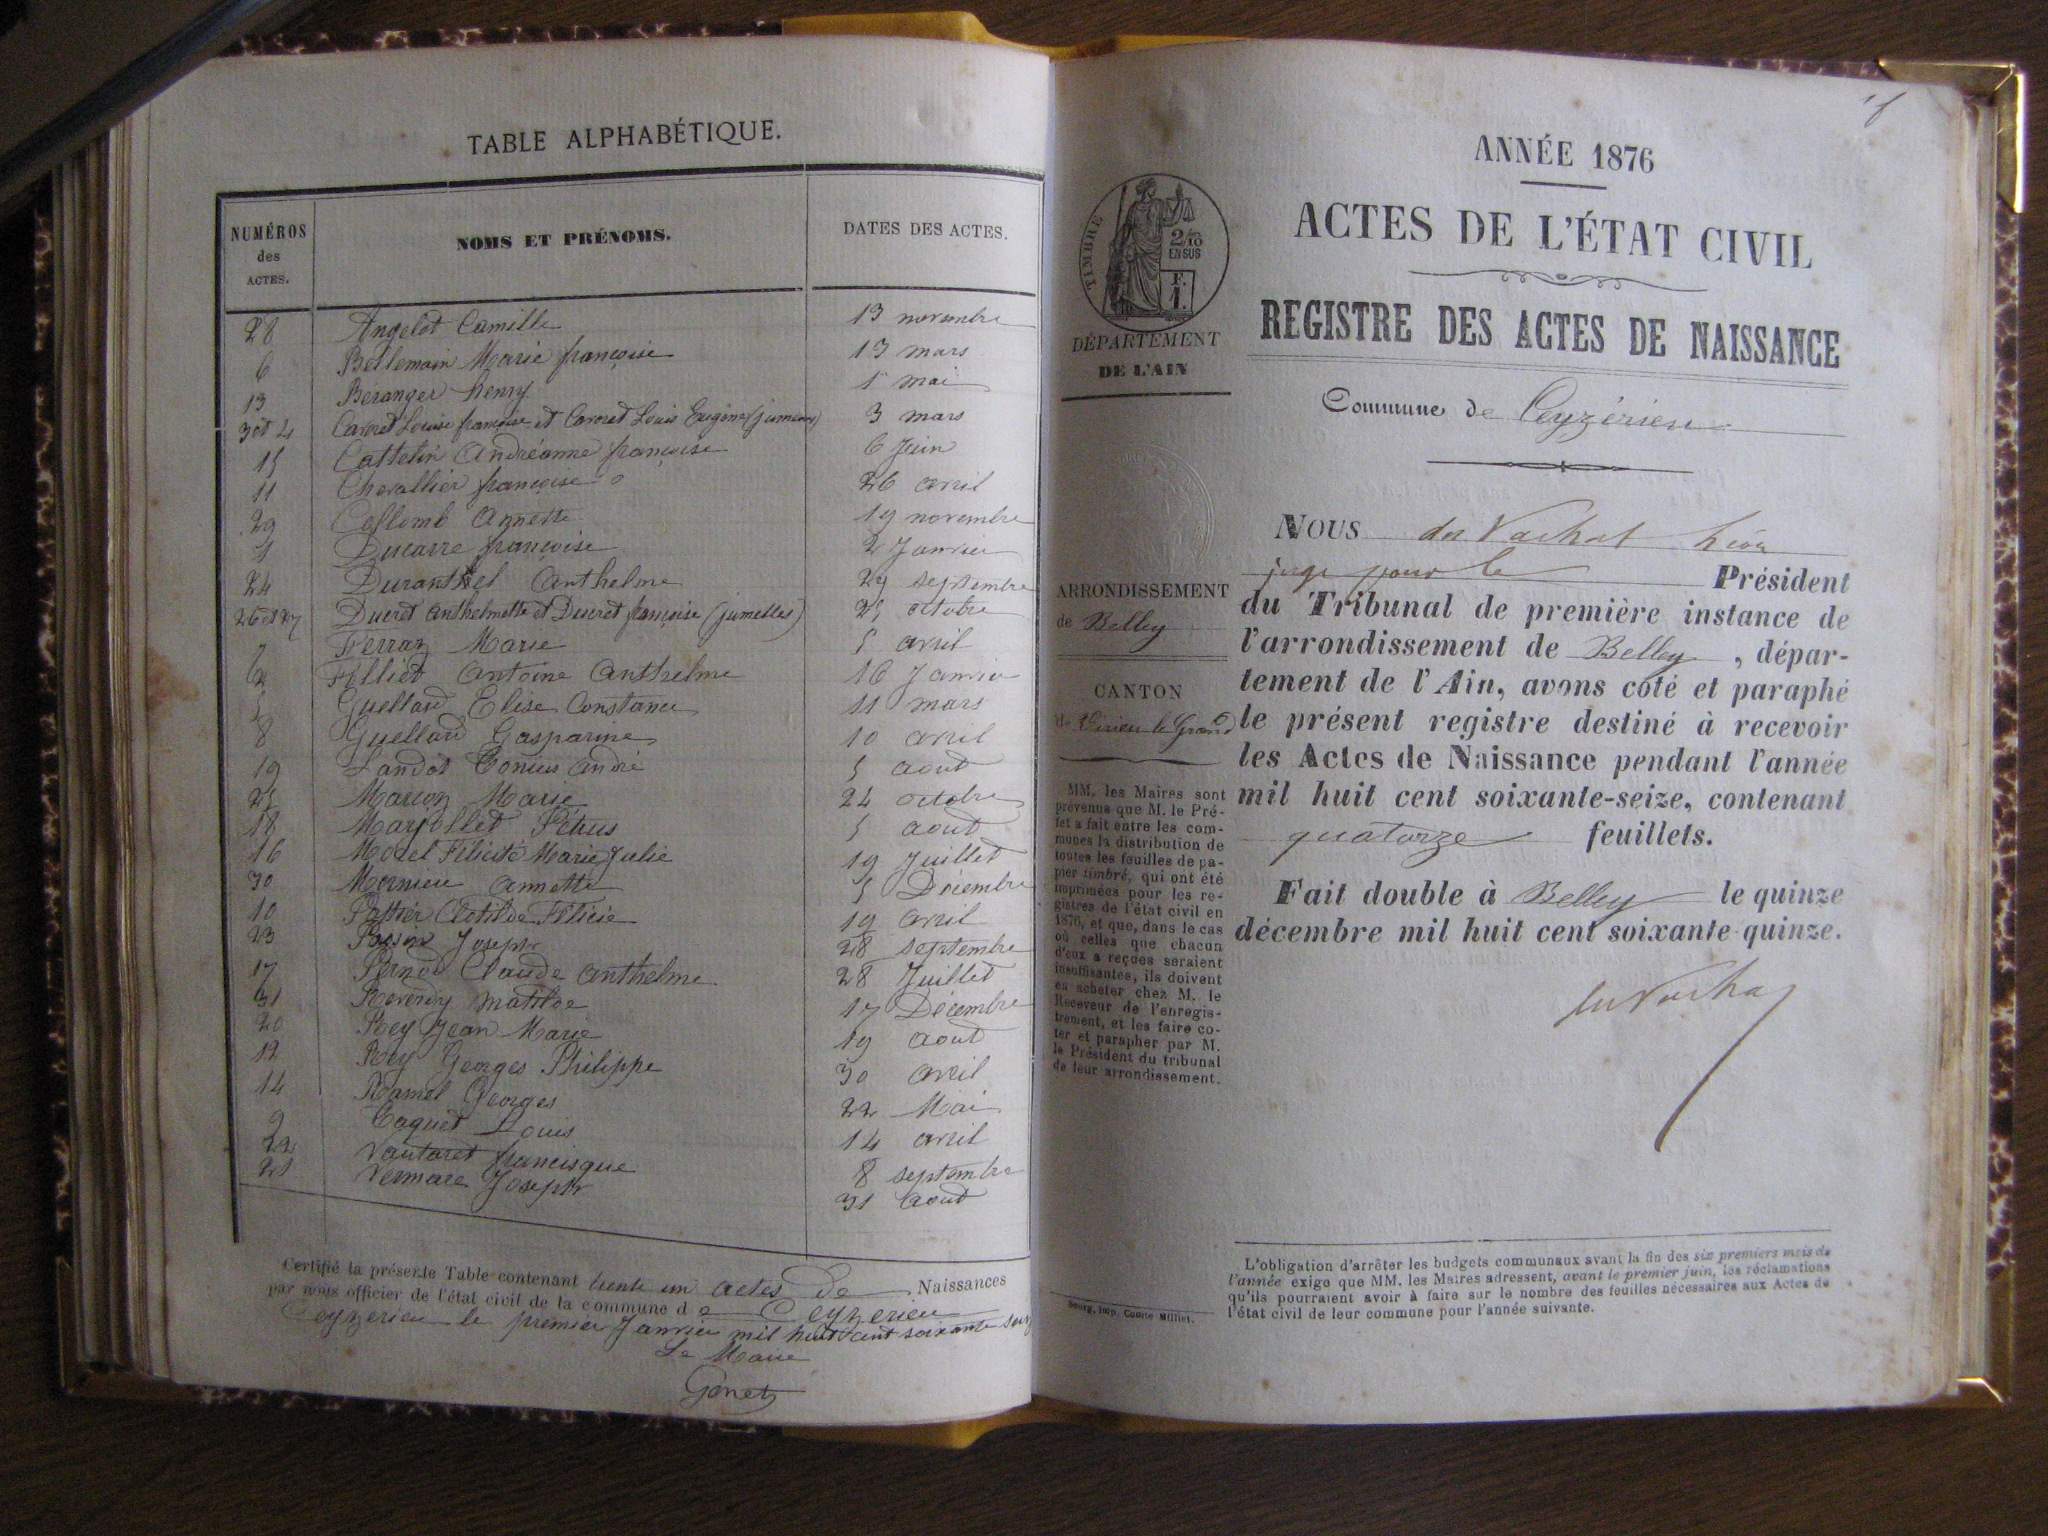 TABLE ALPHABÉTIQUE.
NUMÉROS des ACTES. NOMS ET PRÉNOMS. DATES DES ACTES.
28 Angelot Camille 13 novembre
6 Bellemain Marie françoise 13 mars
13 Béranger henry 1er mai
3 et 4 Carret Louise françoise et Carret Louis Eugène (jumeaux) 3 mars
15 Cattelin Andréanne françoise 6 Juin
11 Chevallier françoise 26 avril
29 Collomb Annette 19 novembre
1 Ducarre françoise 2 Janvier
24 Duranthel Anthelme 29 septembre
26 et 27 Ducret Anthelmette et Ducret françoise (jumelles) 25 octobre
7 Ferraz Marie 5 avril
2 Filliet Antoine Anthelme 16 Janvier
5 Guellard Elise Constance 11 mars
8 Guellard Gasparine 10 avril
19 Landot Tonius André 5 aout
25 Marion Marie 24 octobre
18 Marjollet Pétrus 5 aout
16 Morel Félicité Marie Julie 19 Juillet
30 Mornieu Annette 5 Décembre
10 Clotilde Félicie 19 avril
23 Joseph 28 septembre
17 Pernod Claude Anthelme 28 Juillet
31 Reverdy Matilde 17 Décembre
20 Rey Jean Marie 19 aout
12 Rey Georges Philippe 30 avril
14 Ramel Georges 22 Mai
9 Taquet Louis 14 avril
22 Vautaret francisque 8 septembre
21 Vermare Joseph 31 aout
Certifié la présente Table contenant trente un actes de Naissances
par nous officier de l'état civil de la commune de Ceyzerieu
Ceyzerieu le premier Janvier mil huit cent soixante seize
Le Maire
Genet
ANNÉE 1876
ACTES DE L'ÉTAT CIVIL
REGISTRE DES ACTES DE NAISSANCE
Commune de Ceyzérieu
TIMBRE
2/10
EN SUS
F.
1.
DÉPARTEMENT
DE L'AIN
ARRONDISSEMENT
de Belley
CANTON
de Virieu le Grand
MM. les Maires sont
prévenus que M. le Pré-
fet a fait entre les com-
munes la distribution de
toutes les feuilles de pa-
pier timbré, qui ont été
imprimées pour les re-
gistres de l'état civil en
1876, et que, dans le cas
où celles que chacun
d'eux a reçues seraient
insuffisantes, ils doivent
en acheter chez M. le
Receveur de l'enregis-
trement, et les faire co-
ter et parapher par M.
le Président du tribunal
de leur arrondissement.
NOUS du Vachat Léon
juge pour le Président
du Tribunal de première instance de
l'arrondissement de Belley, dépar-
tement de l'Ain, avons coté et paraphé
le présent registre destiné à recevoir
les Actes de Naissance pendant l'année
mil huit cent soixante-seize, contenant
quatorze feuillets.
Fait double à Belley le quinze
décembre mil huit cent soixante-quinze.
du Vachat
L'obligation d'arrêter les budgets communaux avant la fin des six premiers mois de
l'année exige que MM. les Maires adressent, avant le premier juin, les réclamations
qu'ils pourraient avoir à faire sur le nombre des feuilles nécessaires aux Actes de
l'état civil de leur commune pour l'année suivante.
Bourg, imp. Comte Milliet.